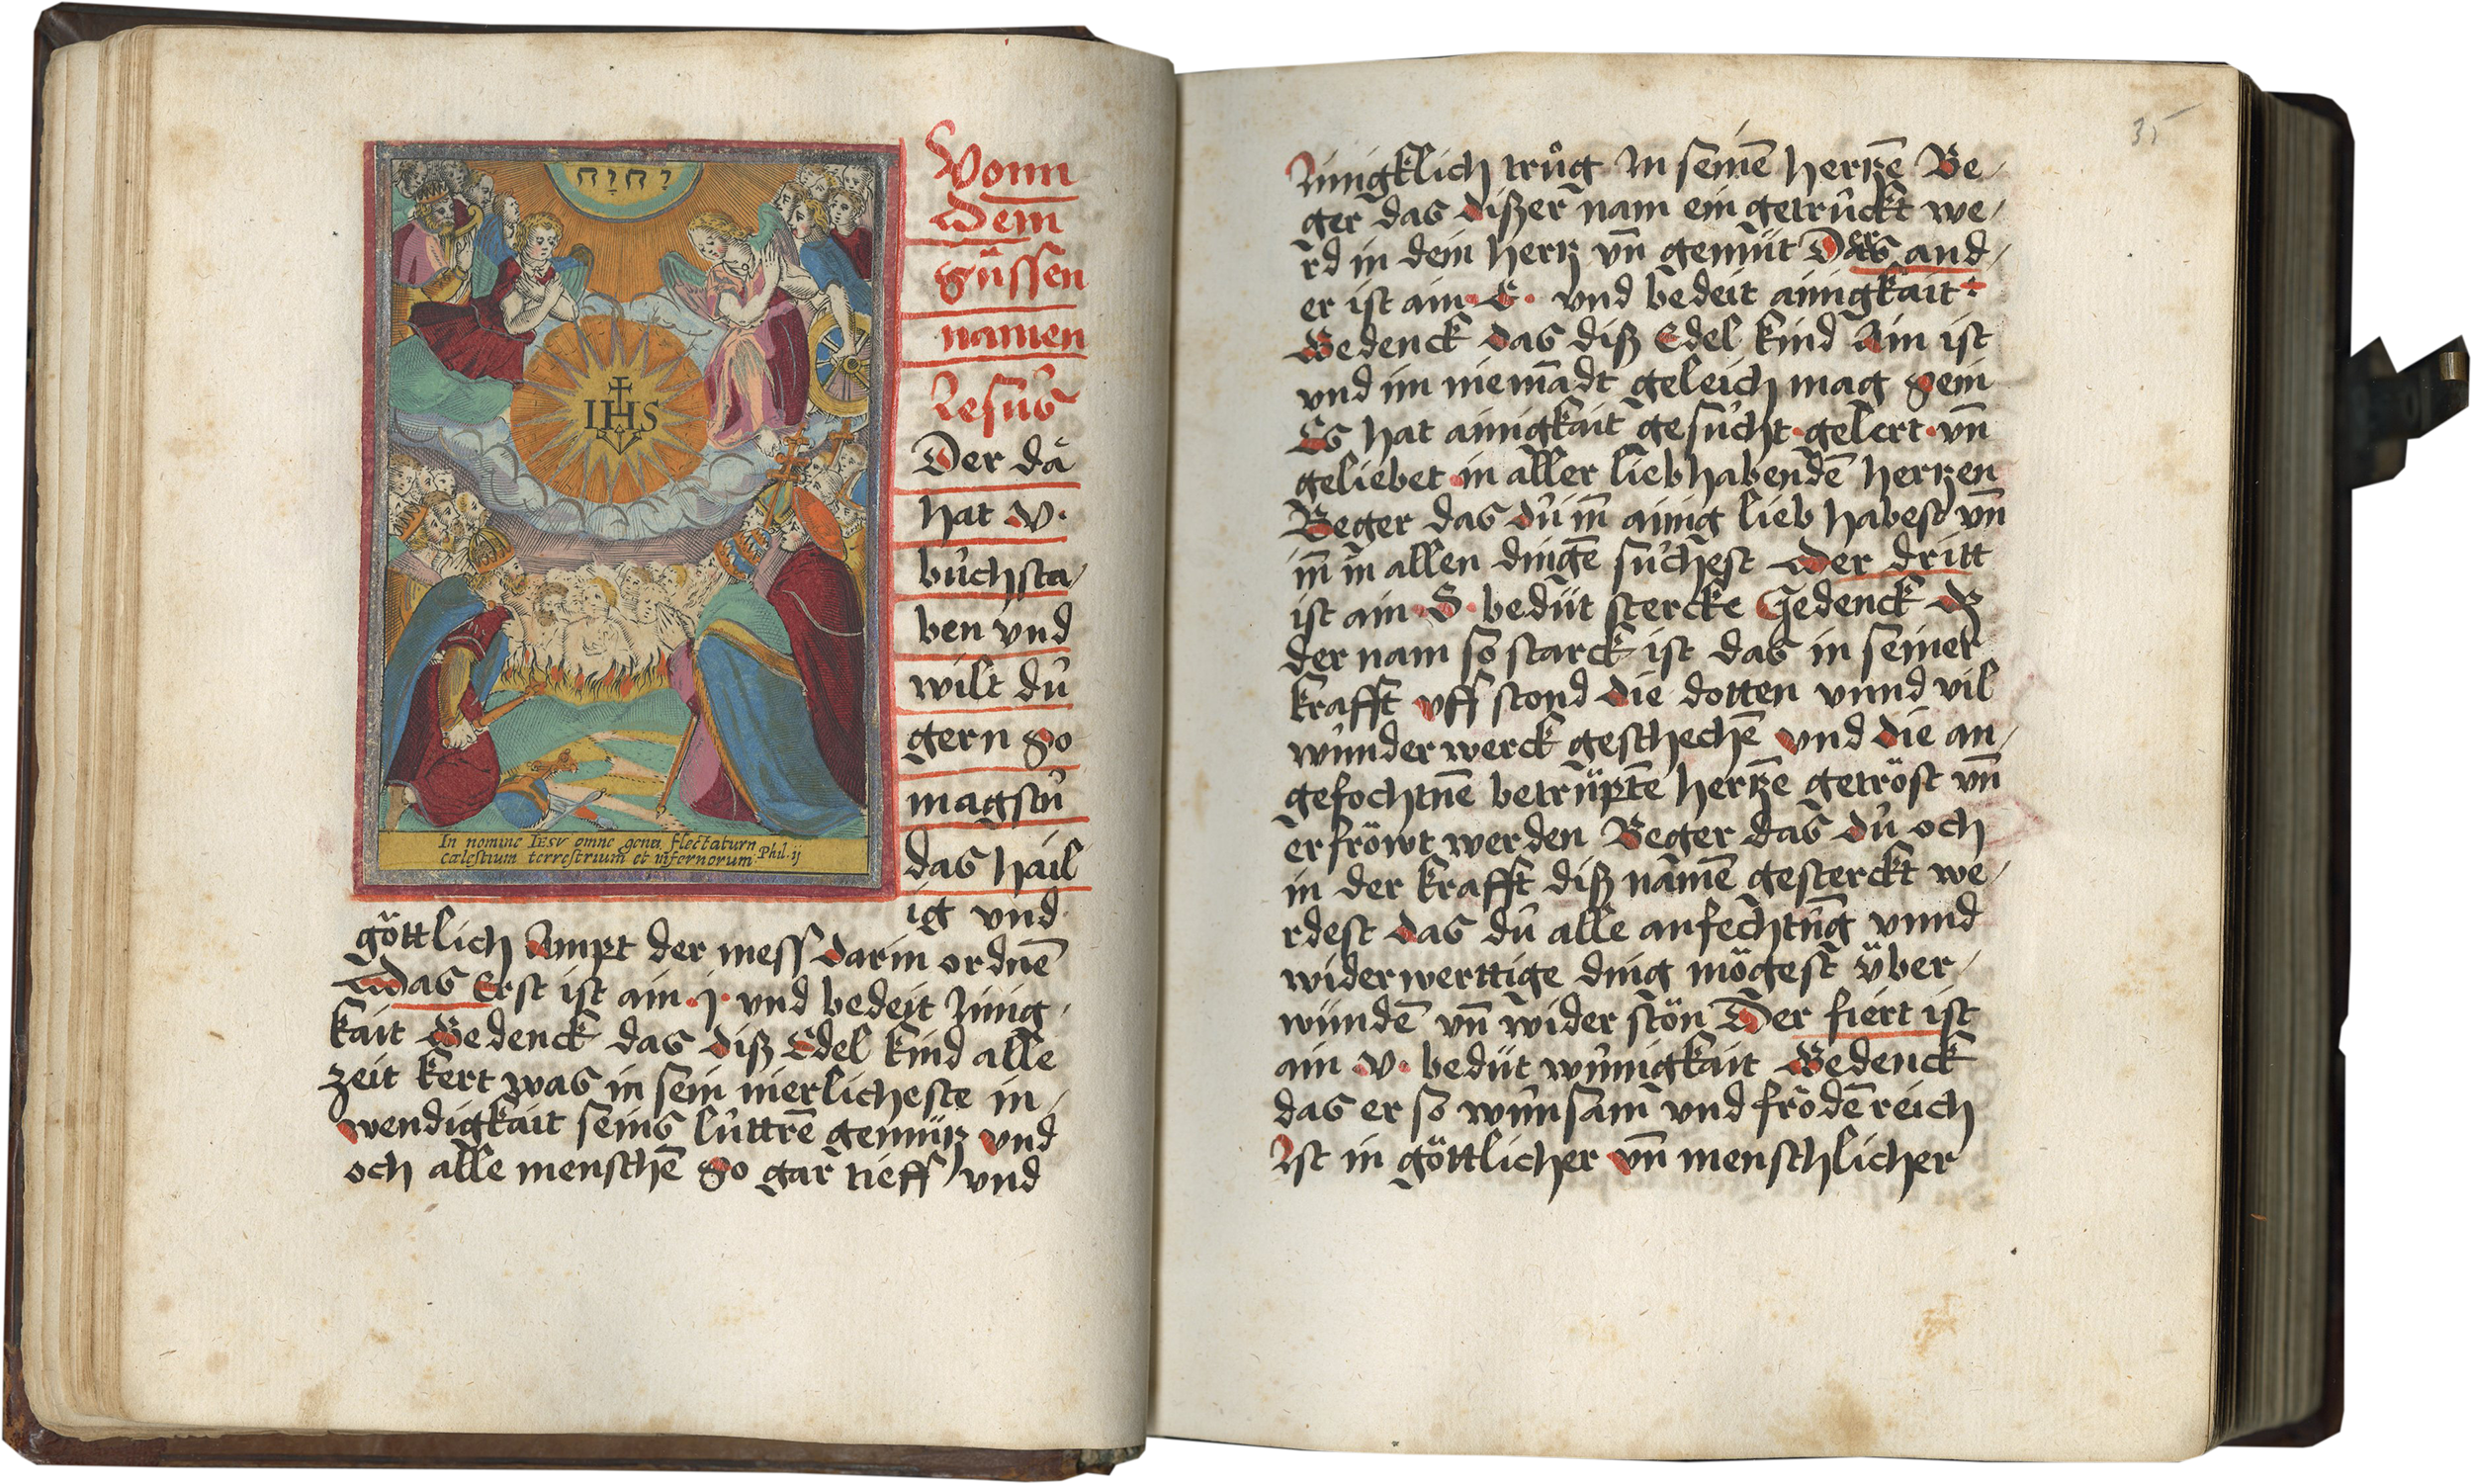 יחוה
IHS
In nomine IESV omne genu flectatur
cælestium terrestrium et infernorum Phil. ij
Vonn
dem
süssen
namen
Jesus
Der da
hat v·
bůchsta/
ben vnd
wilt dů
gern so
magstů
das hail
ig vnd
göttlich Ampt der mess darin ordnē
Das Erst ist ain ·j· vnd bedeit Jnnig/
kait Bedenck das diß Edel kind alle
zeit kert was in sein inerlicheste in/
wendigkait seins lůttrē gemütz vnd
och alle menschē so gar tieff vnd
35
Jnnigklich trůg Jn seinē hertzē Be/
ger das dißer nam ein getruckt we/
rd in dein hertz vn̄ gemüt Der and/
er ist ain ·E· vnd bedeit ainigkait
Bedenck das diß Edel kind Ain ist
vnd im niemādt geleich mag sein
Es hat ainigkait gesůcht·gelert·vn̄
geliebet in aller liebhabendē hertzen
Beger das dů in̄ ainig lieb habest vn̄
in̄ in allen dingē sůchest Der dritt
ist ain ·S· bedüt stercke Gedenck dz
der nam so starck ist das in seiner
krafft vff stond die dotten vnnd vil
wunderwerck geschechē vnd die an/
gefochtnē betrüptē hertzē getröst vn̄
erfröwt werden Beger das dů och
in der krafft diß namē gesterckt we/
rdest das dů alle anfechtūg vnnd
widerwerttige ding mögest über/
wündē vn̄ wider stön Der fiert ist
ain ·v· bedüt wunigkait Bedenck
das er so wunsam vnd frödēreich
Jst in göttlicher vn̄ menschlicher